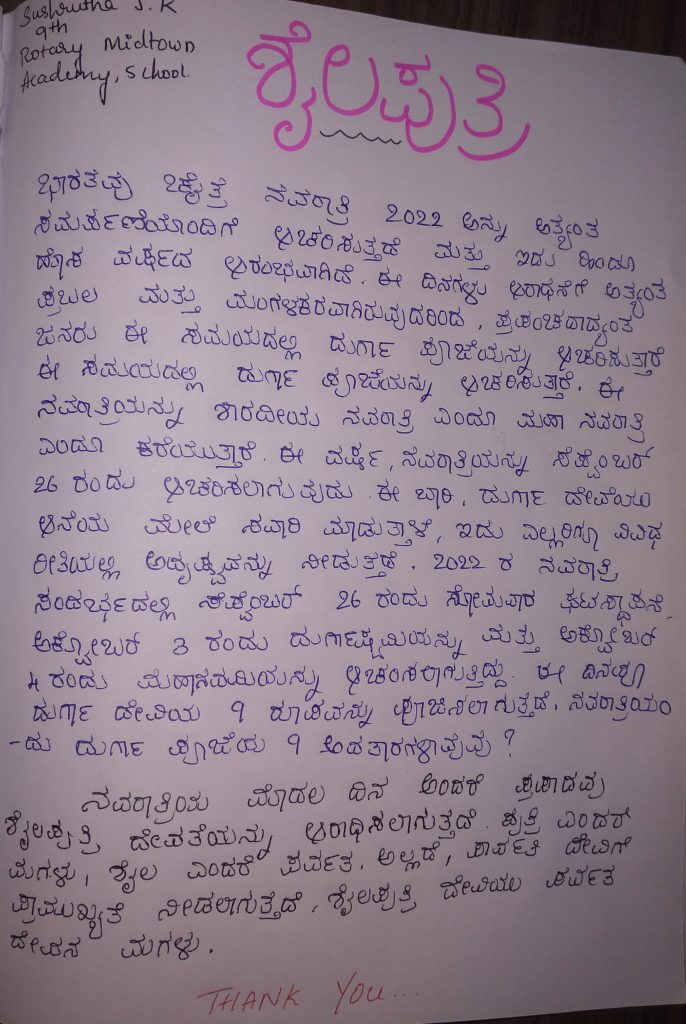 Sushrutha J.K
9th
Rotary Midtown
Academy, School.
ಶೈಲಪುತ್ರಿ
ಭಾರತವು ಚೈತ್ರ ನವರಾತ್ರಿ 2022 ಅನ್ನು ಅತ್ಯಂತ
ಸಮರ್ಪಣೆಯೊಂದಿಗೆ ಆಚರಿಸುತ್ತದೆ ಮತ್ತು ಇದು ಹಿಂದೂ
ಹೊಸ ವರ್ಷದ ಆರಂಭವಾಗಿದೆ. ಈ ದಿನಗಳು ಆರಾಧನೆಗೆ ಅತ್ಯಂತ
ಪ್ರಬಲ ಮತ್ತು ಮಂಗಳಕರವಾಗಿರುವುದರಿಂದ, ಪ್ರಪಂಚದಾದ್ಯಂತ
ಜನರು ಈ ಸಮಯದಲ್ಲಿ ದುರ್ಗಾ ಪೂಜೆಯನ್ನು ಆಚರಿಸುತ್ತಾರೆ
ಈ ಸಮಯದಲ್ಲಿ ದುರ್ಗಾ ಪೂಜೆಯನ್ನು ಆಚರಿಸುತ್ತಾರೆ. ಈ
ನವರಾತ್ರಿಯನ್ನು ಶಾರದೀಯ ನವರಾತ್ರಿ ಎಂದೂ ಮಹಾ ನವರಾತ್ರಿ
ಎಂದೂ ಕರೆಯುತ್ತಾರೆ. ಈ ವರ್ಷ, ನವರಾತ್ರಿಯನ್ನು ಸೆಪ್ಟೆಂಬರ್
26 ರಂದು ಆಚರಿಸಲಾಗುವುದು. ಈ ಬಾರಿ, ದುರ್ಗಾ ದೇವಿಯು
ಆನೆಯ ಮೇಲೆ ಸವಾರಿ ಮಾಡುತ್ತಾಳೆ, ಇದು ಎಲ್ಲರಿಗೂ ವಿವಿಧ
ರೀತಿಯಲ್ಲಿ ಅದೃಷ್ಟವನ್ನು ನೀಡುತ್ತದೆ. 2022 ರ ನವರಾತ್ರಿ
ಸಂದರ್ಭದಲ್ಲಿ ಸೆಪ್ಟೆಂಬರ್ 26 ರಂದು ಸೋಮವಾರ ಘಟಸ್ಥಾಪನೆ.
ಅಕ್ಟೋಬರ್ 3 ರಂದು ದುರ್ಗಾಷ್ಟಮಿಯನ್ನು ಮತ್ತು ಅಕ್ಟೋಬರ್
4 ರಂದು ಮಹಾನವಮಿಯನ್ನು ಆಚರಿಸಲಾಗುತ್ತಿದ್ದು. ಈ ದಿನಪೂ
ದುರ್ಗಾ ದೇವಿಯ 9 ರೂಪವನ್ನು ಪೂಜಿಸಲಾಗುತ್ತದೆ. ನವರಾತ್ರಿಯಂ
-ದು ದುರ್ಗಾ ಪೂಜೆಯ 9 ಅವತಾರಗಳಾವುವು?
ನವರಾತ್ರಿಯ ಮೊದಲ ದಿನ ಅಂದರೆ ಪ್ರಪಾದವು
ಶೈಲಪುತ್ರಿ ದೇವತೆಯನ್ನು ಆರಾಧಿಸಲಾಗುತ್ತದೆ. ಪುತ್ರಿ ಎಂದರೆ
ಮಗಳು, ಶೈಲ ಎಂದರೆ ಪರ್ವತ. ಅಲ್ಲದೆ, ಪಾರ್ವತಿ ದೇವಿಗೆ
ಪ್ರಾಮುಖ್ಯತೆ ನೀಡಲಾಗುತ್ತದೆ. ಶೈಲಪುತ್ರಿ ದೇವಿಯು ಪರ್ವತ
ದೇವನ ಮಗಳು.
THANK YOU...